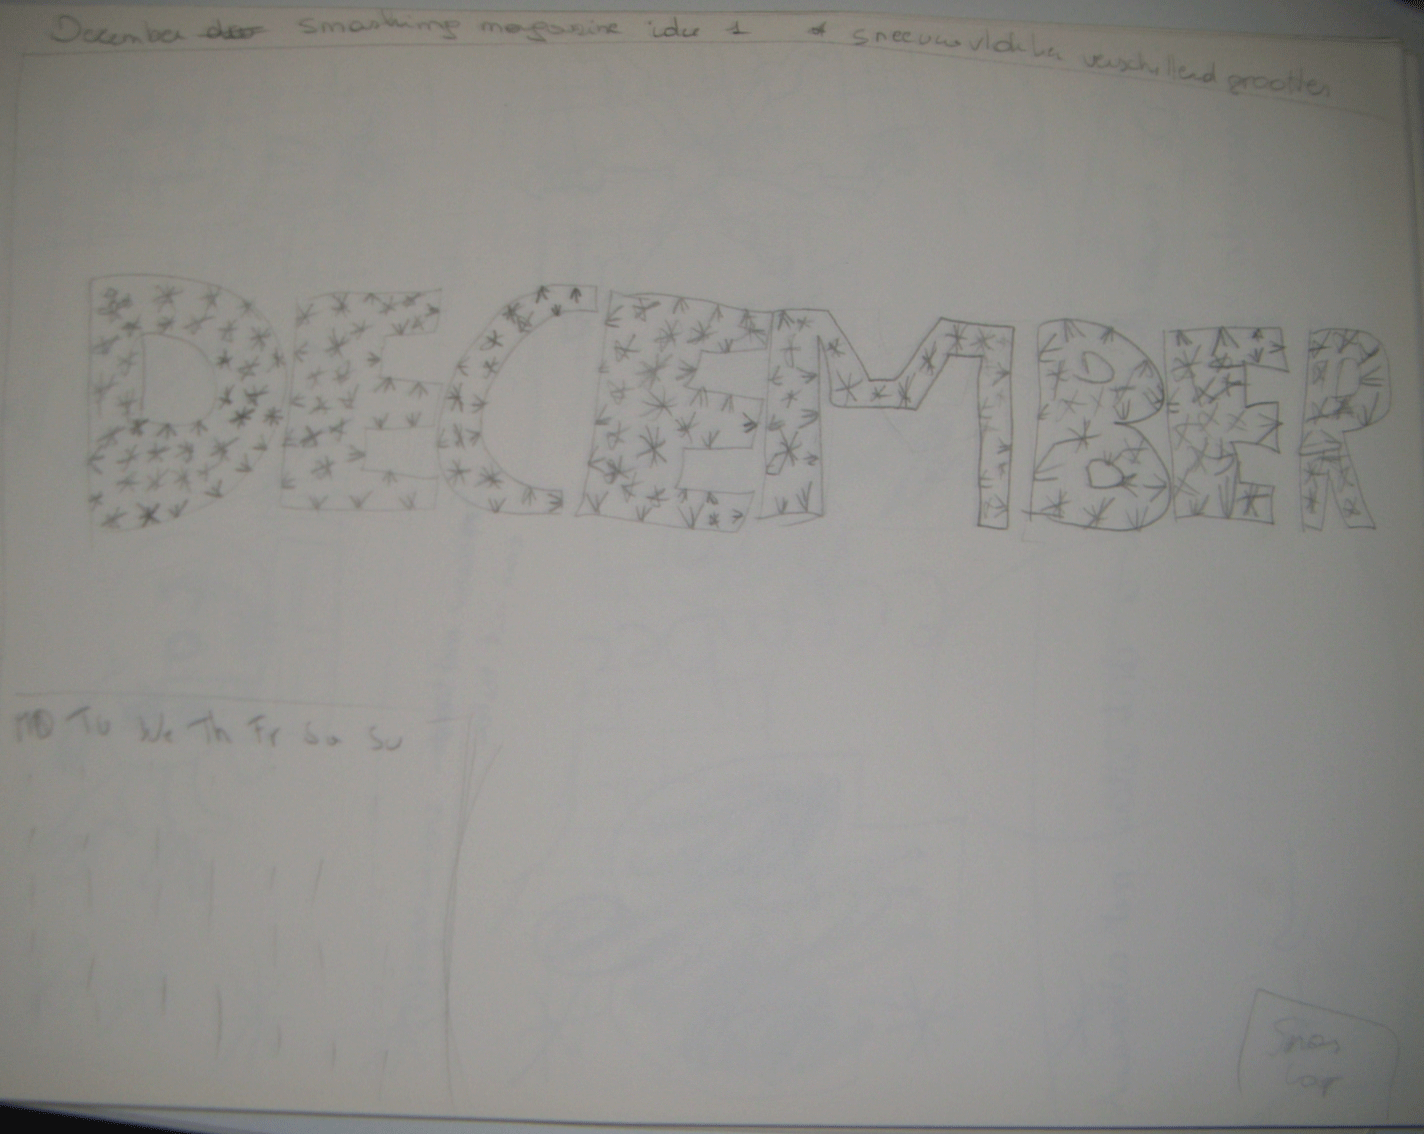 December smashing magazine idee 1 * sneeuwvlokken verschillend grootten
DECEMBER
MO Tu We Th Fr Sa Su